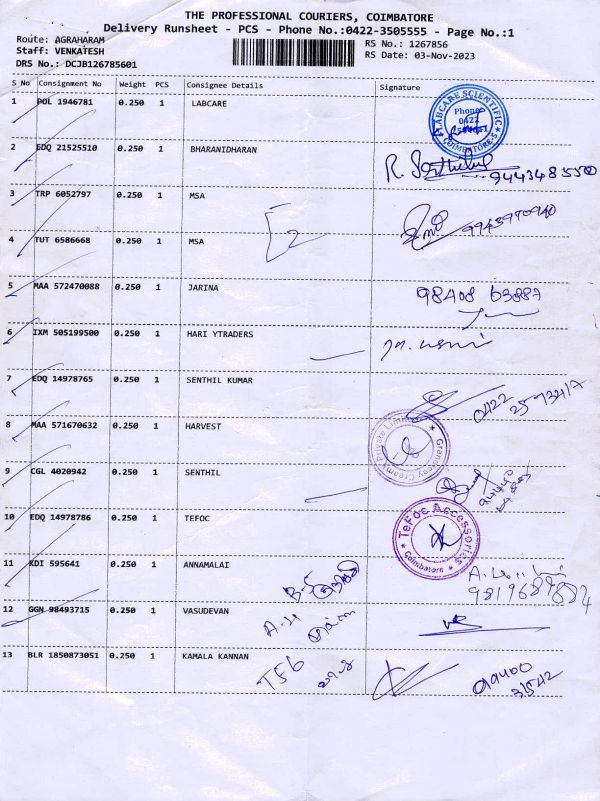 THE PROFESSIONAL COURIERS, COIMBATORE
Delivery Runsheet - PCS - Phone No.:0422-3505555 - Page No.:1
Route: AGRAHARAM
Staff: VENKATESH
RS No.: 1267856
DRS No.: DCJB126785601
RS Date: 03-Nov-2023
S No Consignment No Weight PCS Consignee Details Signature
1 POL 1946781 0.250 1 LABCARE
LABCARE SCIENTIFIC
Phone
0422
COIMBATORE-5
2 EDQ 21525510 0.250 1 BHARANIDHARAN
3 TRP 6052797 0.250 1 MSA
9943970940
4 TUT 6586668 0.250 1 MSA
2
5 MAA 572470088 0.250 1 JARINA
98408 63887
6 IXM 505199500 0.250 1 HARI YTRADERS
7 EDQ 14978765 0.250 1 SENTHIL KUMAR
0422
8 MAA 571670632 0.250 1 HARVEST
Private Limited
9 CGL 4020942 0.250 1 SENTHIL
10 EDQ 14978786 0.250 1 TEFOC
TeFoc Accessories
Coimbatore
11 KDI 595641 0.250 1 ANNAMALAI
12 GGN 98493715 0.250 1 VASUDEVAN
13 BLR 1850873051 0.250 1 KAMALA KANNAN